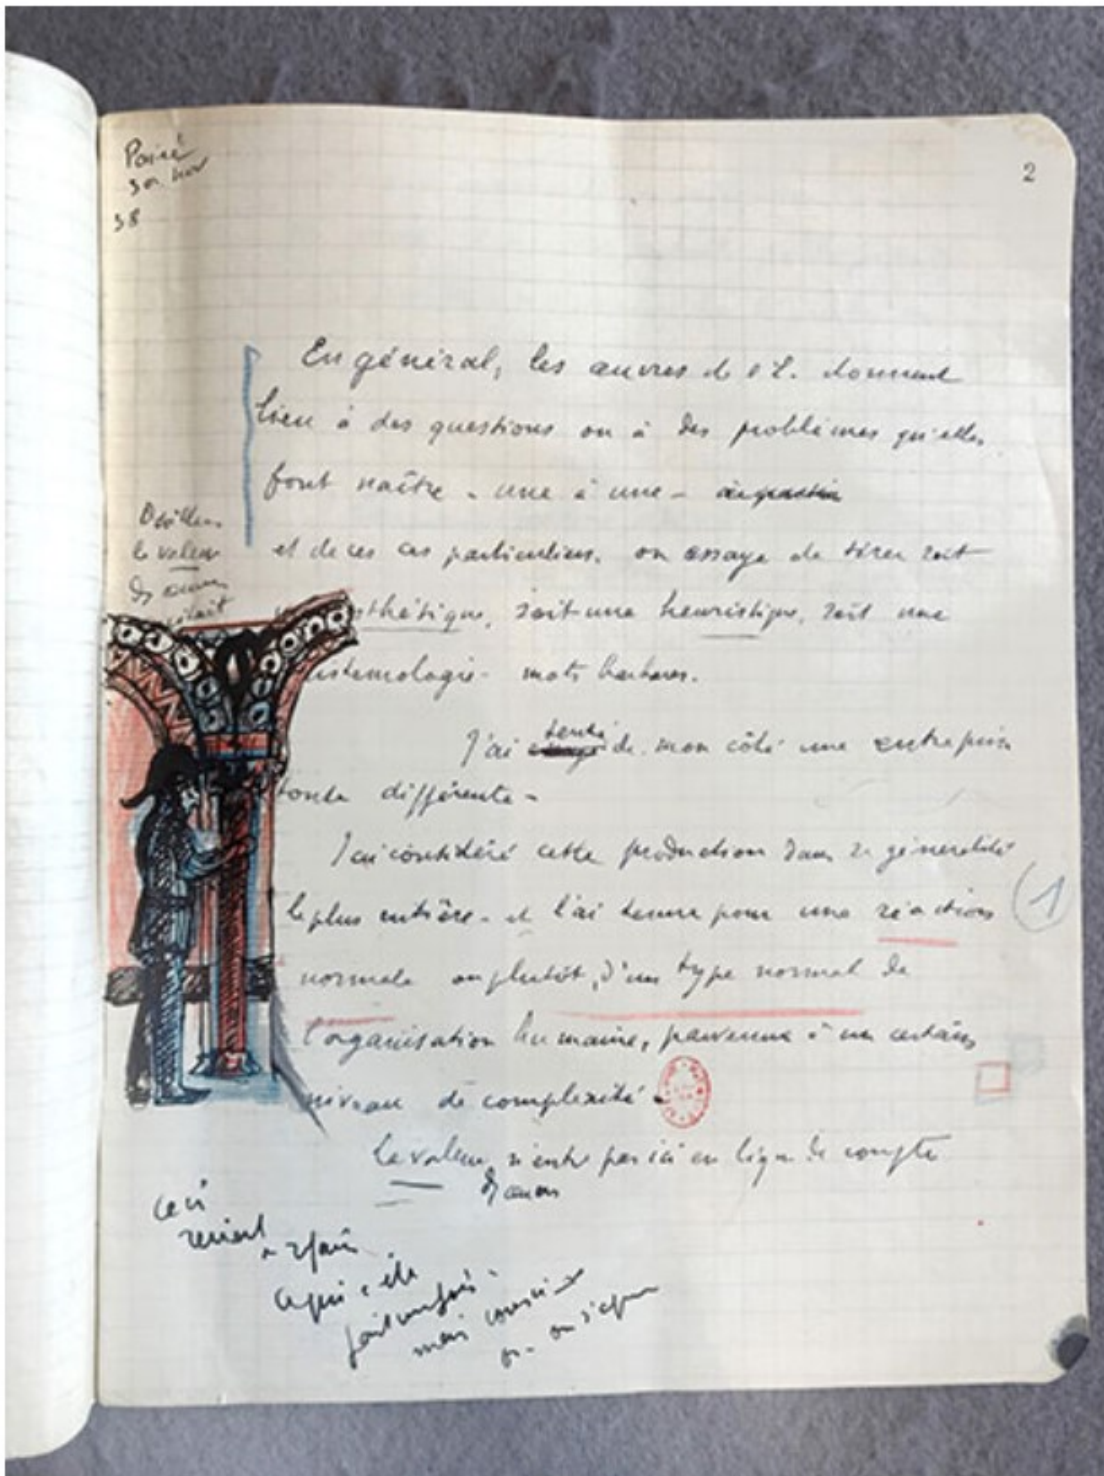 2
38
En général, les œuvres de l'E. donnent
lieu à des questions ou à des problèmes qu'elles
font naître - une à une -
et de ces cas particuliers, on essaye de tirer soit
le valeur
sthétique, soit une heuristique, soit une
istémologie - mots barbares.
J'ai tenté de mon côté une entreprise
toute différente -
J'ai considéré cette production dans sa généralité
la plus entière - et l'ai tenue pour une réaction
(1)
normale ou plutôt, d'un type normal de
l'organisation humaine, parvenue à un certain
niveau de complexité -
La valeur n'entre pas ici en ligne de compte
Ceci
revient
à refaire
ce qui a été
fait
mais